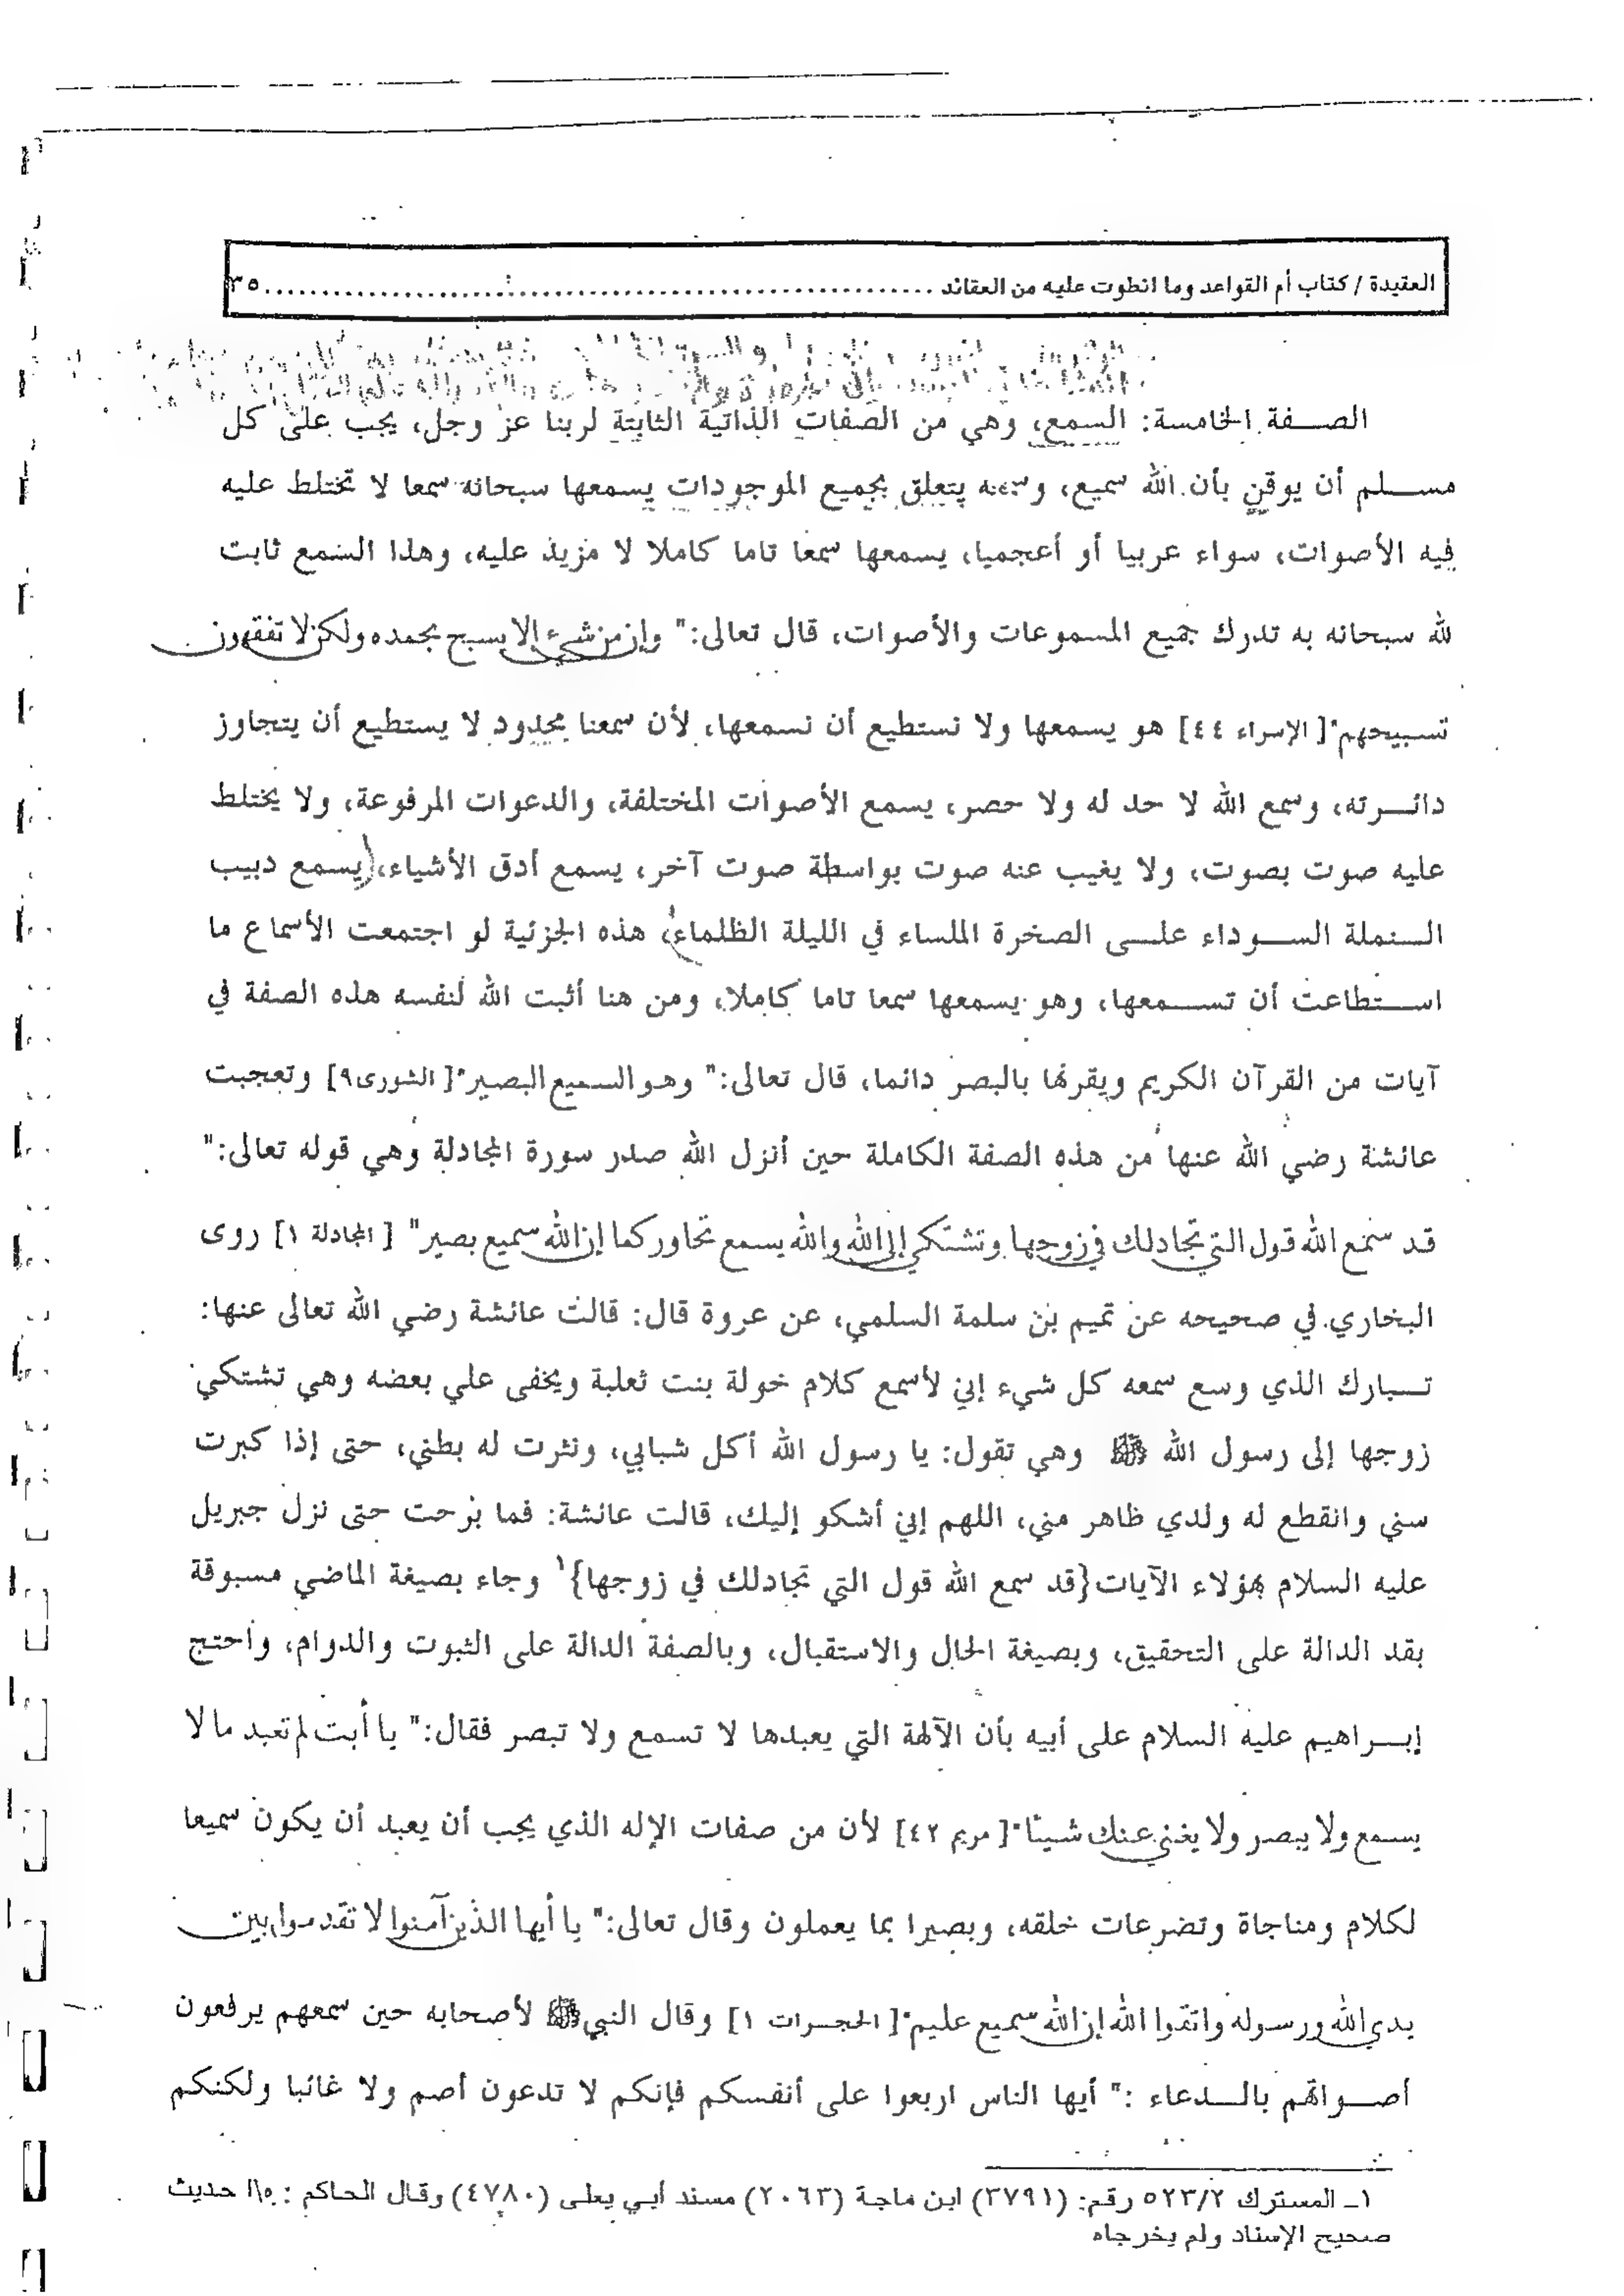 العقيدة / كتاب أم القواعد وما انطوت عليه من العقائد ............................................................ ٣٥
الصـــفة الخامسة: السمع، وهي من الصفات الذاتية الثابتة لربنا عز وجل، يجب على كل
مســـلم أن يوقن بأن الله سميع، وسمعه يتعلق بجميع الموجودات يسمعها سبحانه سمعا لا تختلط عليه
فيه الأصوات، سواء عربيا أو أعجميا، يسمعها سمعا تاما كاملا لا مزيد عليه، وهذا السمع ثابت
لله سبحانه به تدرك جميع المسموعات والأصوات، قال تعالى:" وإن من شيء إلا يسبح بحمده ولكن لا تفقهون
تسبيحهم"[ الإسراء ٤٤] هو يسمعها ولا نستطيع أن نسمعها، لأن سمعنا محدود لا يستطيع أن يتجاوز
دائـــرته، وسمع الله لا حد له ولا حصر، يسمع الأصوات المختلفة، والدعوات المرفوعة، ولا يختلط
عليه صوت بصوت، ولا يغيب عنه صوت بواسطة صوت آخر، يسمع أدق الأشياء، (يسمع دبيب
الـــنملة الســـوداء علـــى الصخرة الملساء في الليلة الظلماء) هذه الجزئية لو اجتمعت الأسماع ما
اســـتطاعت أن تســـمعها، وهو يسمعها سمعا تاما كاملا، ومن هنا أثبت الله لنفسه هذه الصفة في
آيات من القرآن الكريم ويقرنها بالبصر دائما، قال تعالى:" وهو السميع البصير"[ الشورى٩] وتعجبت
عائشة رضي الله عنها من هذه الصفة الكاملة حين أنزل الله صدر سورة المجادلة وهي قوله تعالى:"
قد سمع الله قول التي تجادلك في زوجها وتشتكي إلى الله والله يسمع تحاوركما إن الله سميع بصير" [ المجادلة ١] روى
البخاري في صحيحه عن تميم بن سلمة السلمي، عن عروة قال: قالت عائشة رضي الله تعالى عنها:
تـــبارك الذي وسع سمعه كل شيء إني لأسمع كلام خولة بنت ثعلبة ويخفى علي بعضه وهي تشتكي
زوجها إلى رسول الله ﷺ وهي تقول: يا رسول الله أكل شبابي، ونثرت له بطني، حتى إذا كبرت
سني وانقطع له ولدي ظاهر مني، اللهم إني أشكو إليك، قالت عائشة: فما برحت حتى نزل جبريل
عليه السلام بهؤلاء الآيات{قد سمع الله قول التي تجادلك في زوجها}١ وجاء بصيغة الماضي مسبوقة
بقد الدالة على التحقيق، وبصيغة الحال والاستقبال، وبالصفة الدالة على الثبوت والدوام، واحتج
إبـــراهيم عليه السلام على أبيه بأن الآلهة التي يعبدها لا تسمع ولا تبصر فقال:" يا أبت لم تعبد ما لا
يسمع ولا يبصر ولا يغني عنك شيئا"[ مريم ٤٢] لأن من صفات الإله الذي يجب أن يعبد أن يكون سميعا
لكلام ومناجاة وتضرعات خلقه، وبصيرا بما يعملون وقال تعالى:" يا أيها الذين آمنوا لا تقدموا بين
يدي الله ورسوله واتقوا الله إن الله سميع عليم"[ الحجـرات ١] وقال النبي ﷺ لأصحابه حين سمعهم يرفعون
أصـــواتهم بالـــدعاء :" أيها الناس اربعوا على أنفسكم فإنكم لا تدعون أصم ولا غائبا ولكنكم
١ـ المسترك ٥٢٣/٢ رقم: (٣٧٩١) ابن ماجة (٢٠٦٣) مسند أبي يعلى (٤٧٨٠) وقال الحاكم : حديث
صحيح الإسناد ولم يخرجاه